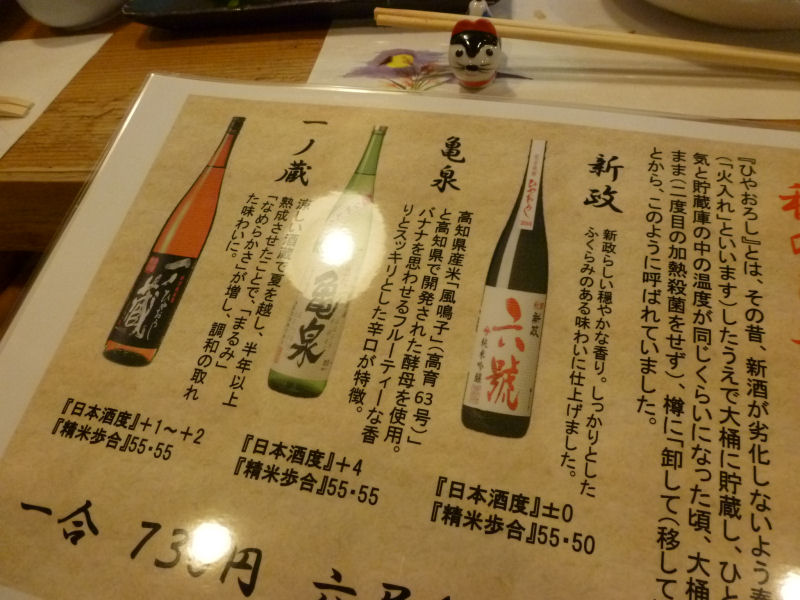 『ひやおろし』とは、その昔、新酒が劣化しないよう春
(「火入れ」といいます)したうえで大桶に貯蔵し、ひと
気と貯蔵庫の中の温度が同じくらいになった頃、大桶
まま(二度目の加熱殺菌をせず)、樽に「卸して(移して
とから、このように呼ばれていました。
新政
新政らしい穏やかな香り。しっかりとした
ふくらみのある味わいに仕上げました。
ひやおろし
新政
六號
純米吟醸
『日本酒度』±0
『精米歩合』55・50
亀泉
高知県産米「風鳴子」(高育63号)」
と高知県で開発された酵母を使用。
バナナを思わせるフルーティーな香
りとスッキリとした辛口が特徴。
亀泉
『日本酒度』+4
『精米歩合』55・55
一ノ蔵
涼しい酒蔵で夏を越し、半年以上
熟成させたことで、「まるみ」
「なめらかさ」が増し、調和の取れ
た味わいに。
一ノ蔵
ひやおろし
『日本酒度』+1~+2
『精米歩合』55・55
一合
円